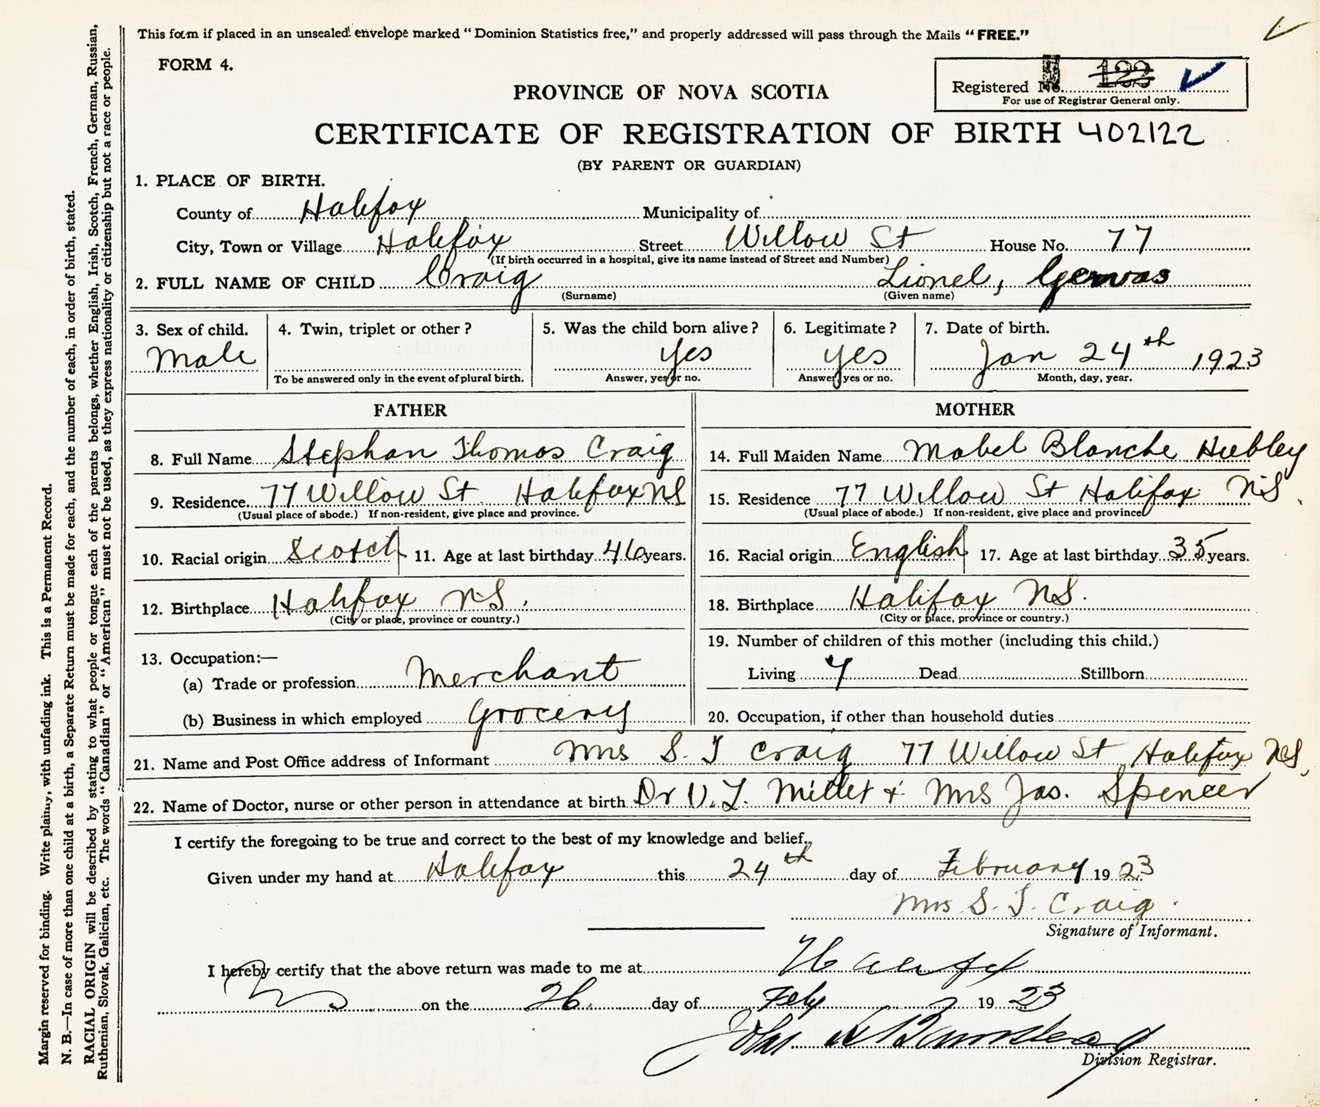 This form if placed in an unsealed envelope marked “Dominion Statistics free,” and properly addressed will pass through the Mails “FREE.”
FORM 4.
Registered No. 122
For use of Registrar General only.
PROVINCE OF NOVA SCOTIA
CERTIFICATE OF REGISTRATION OF BIRTH 402122
(BY PARENT OR GUARDIAN)
1. PLACE OF BIRTH.
County of Halifax Municipality of
City, Town or Village Halifax Street Willow St House No. 77
(If birth occurred in a hospital, give its name instead of Street and Number)
2. FULL NAME OF CHILD Craig Lionel, Gervas
(Surname) (Given name)
3. Sex of child. 4. Twin, triplet or other? 5. Was the child born alive? 6. Legitimate? 7. Date of birth.
Male yes yes Jan 24th 1923
To be answered only in the event of plural birth. Answer, yes or no. Answer, yes or no. Month, day, year.
FATHER
8. Full Name Stephan Thomas Craig
9. Residence 77 Willow St Halifax NS
(Usual place of abode.) If non-resident, give place and province.
10. Racial origin Scotch 11. Age at last birthday 46 years.
12. Birthplace Halifax NS.
(City or place, province or country.)
13. Occupation:—
(a) Trade or profession Merchant
(b) Business in which employed Grocery
MOTHER
14. Full Maiden Name Mabel Blanche Hubley
15. Residence 77 Willow St Halifax NS.
(Usual place of abode.) If non-resident, give place and province
16. Racial origin English 17. Age at last birthday 35 years.
18. Birthplace Halifax NS.
(City or place, province or country.)
19. Number of children of this mother (including this child.)
Living 7 Dead Stillborn
20. Occupation, if other than household duties
21. Name and Post Office address of Informant Mrs S. T Craig 77 Willow St Halifax NS.
22. Name of Doctor, nurse or other person in attendance at birth Dr V. L. Miller + Mrs Jas. Spencer
I certify the foregoing to be true and correct to the best of my knowledge and belief.
Given under my hand at Halifax this 24th day of February 1923
Mrs S. T. Craig.
Signature of Informant.
I hereby certify that the above return was made to me at Halifax
NS on the 26 day of Feby 1923
John
Division Registrar.
Margin reserved for binding. Write plainly, with unfading ink. This is a Permanent Record.
N. B.—In case of more than one child at a birth, a Separate Return must be made for each, and the number of each, in order of birth, stated.
RACIAL ORIGIN will be described by stating to what people or tongue each of the parents belongs, whether English, Irish, Scotch, French, German, Russian,
Ruthenian, Slovak, Galician, etc. The words “Canadian” or “American” must not be used, as they express nationality or citizenship but not a race or people.